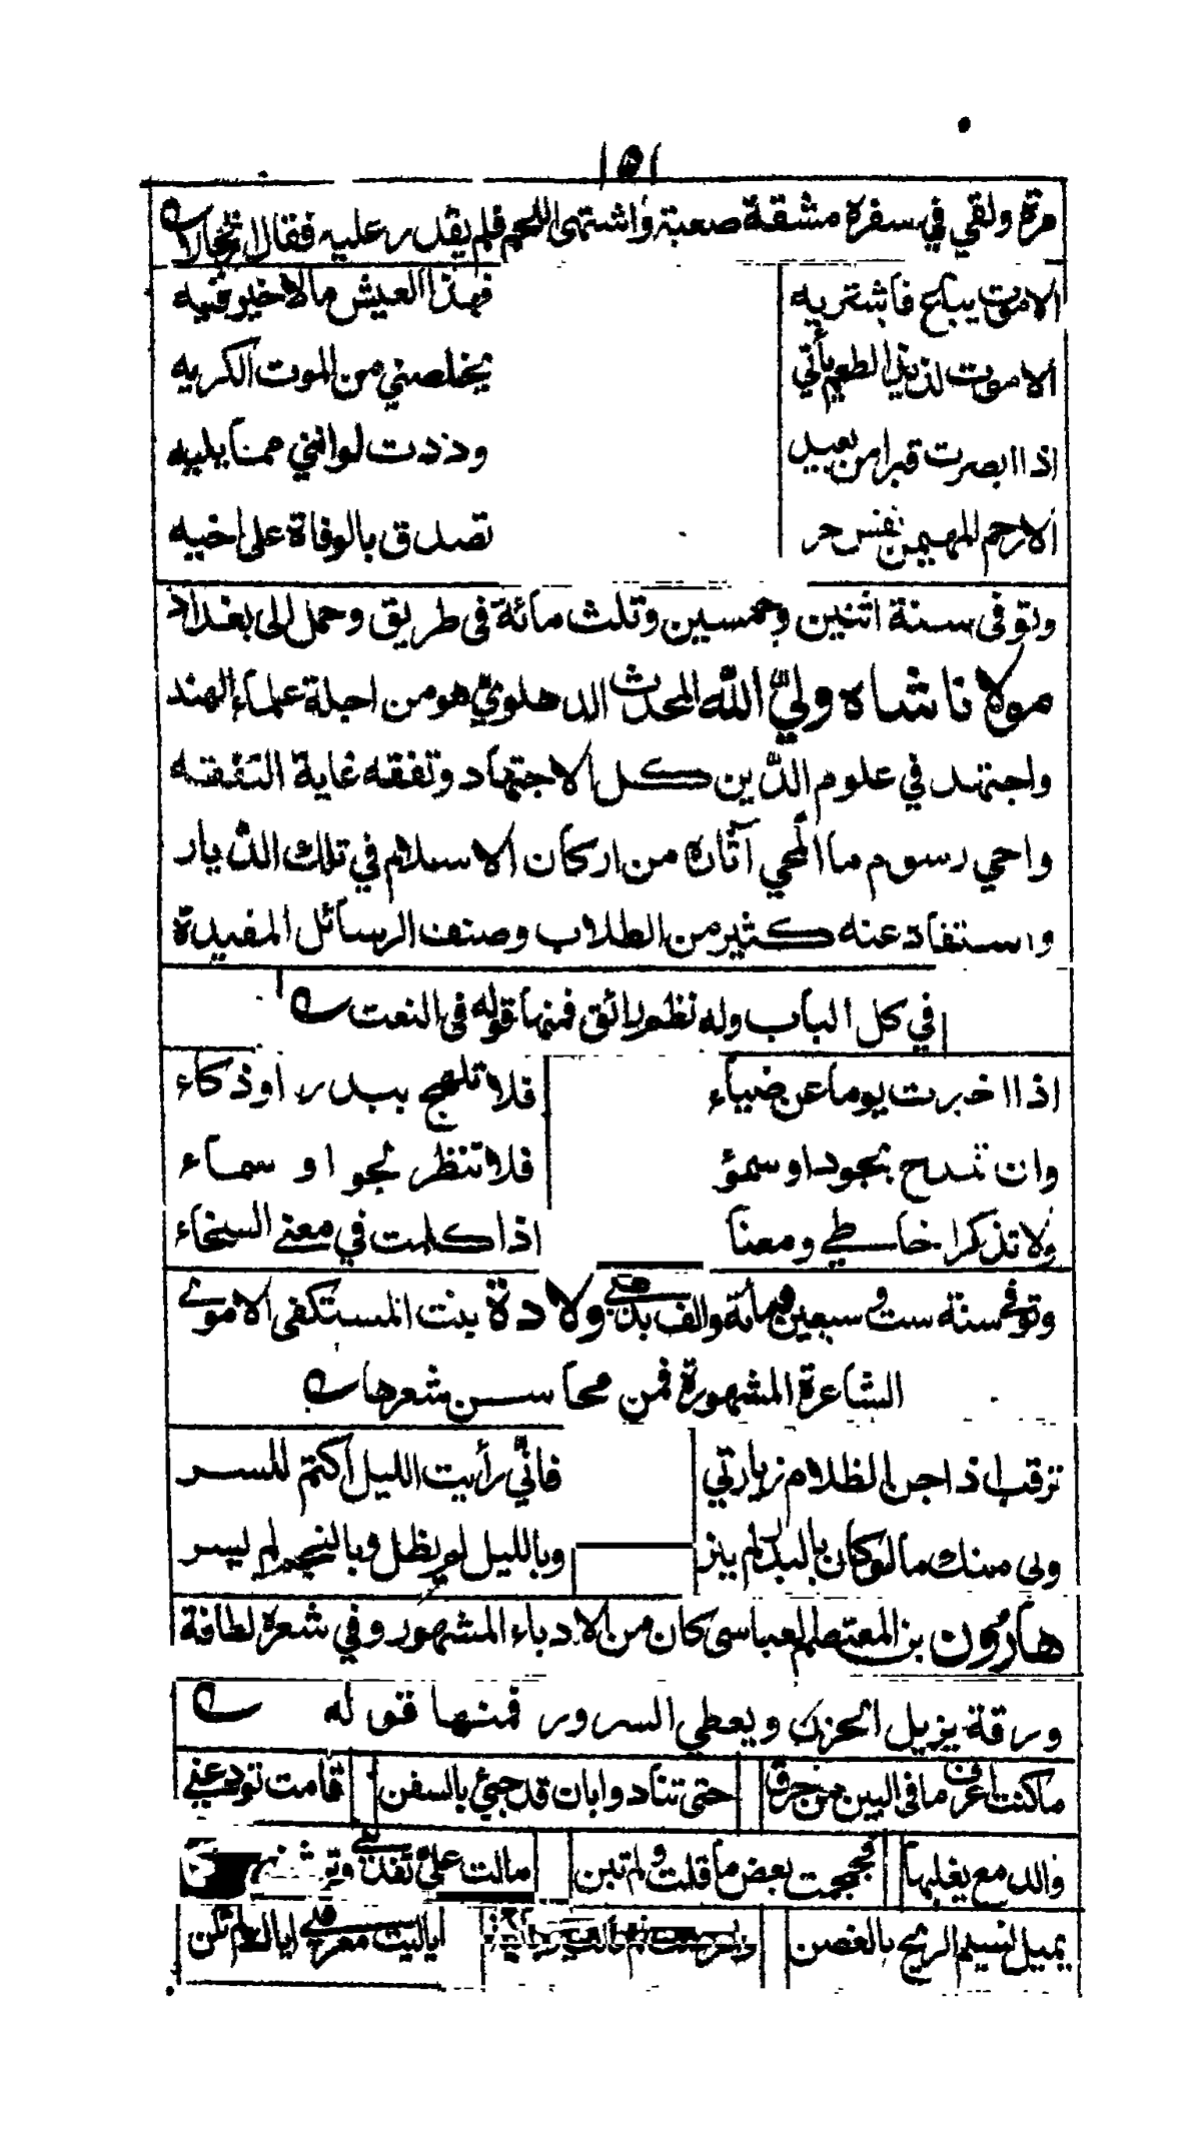 ١٥١
مرة ولقي في سفره مشقة صعبة واشتهى اللحم فلم يقدر عليه فقال ارتجالا
الا موت يباع فاشتريه فهذا العيش مالا خير فيه
الا موت لذيذ الطعم يأتي يخلصني من الموت الكريه
اذا ابصرت قبرا من بعيد وددت لو انني مما يليه
الا رحم المهيمن نفس حر تصدق بالوفاة على اخيه
وتوفى سنة اثنين وخمسين وثلث مائة فى طريق وحمل الى بغداد
مولانا شاه وليّ الله المحدث الدهلوي هو من اجلة علماء الهند
واجتهد في علوم الدّين كل الاجتهاد وتفقه غاية التفقه
واحي رسوم ما المحي آثاره من اركان الاسلام في تلك الدّيار
واستفاد عنه كثير من الطلاب وصنف الرسائل المفيدة
في كل الباب وله نظم رائق فمنها قوله فى النعت
اذا اخبرت يوما عن ضياء فلا تلهج ببدر او ذكاء
وان تمدح بجود او سمؤ فلا تنظر لجو او سماء
ولا تذكر اخا طي ومعنا اذا كلمت في معنے السخاء
وتوفے سنة ست و سبعين ومائة والف بدهلے ولادة بنت المستكفى الاموے
الشاعرة المشهورة فمن محاسن شعرها
ترقب اذا جن الظلام زيارتي فانّي رأيت الليل اكتم للسر
ولى منك مالو كان بالبدر لم ينر وبالليل لم يظل وبالنجم لم يسر
هارون بن المعتصم العباسى كان من الادباء المشهور وفي شعره لطافة
ورقة يزيل الحزن ويعطي السرور فمنها قوله
ماكنت اعرف مافى البين من حرق حتى تنادوا بان قد جيئ بالسفن قامت تودعنے
والدمع يغلبها فجمجمت بعض ما قلت ولم تبن مالت عليّ تفدينے
يميل نسيم الريح بالغصن ايا ليت معرفتے اياك لم تكن